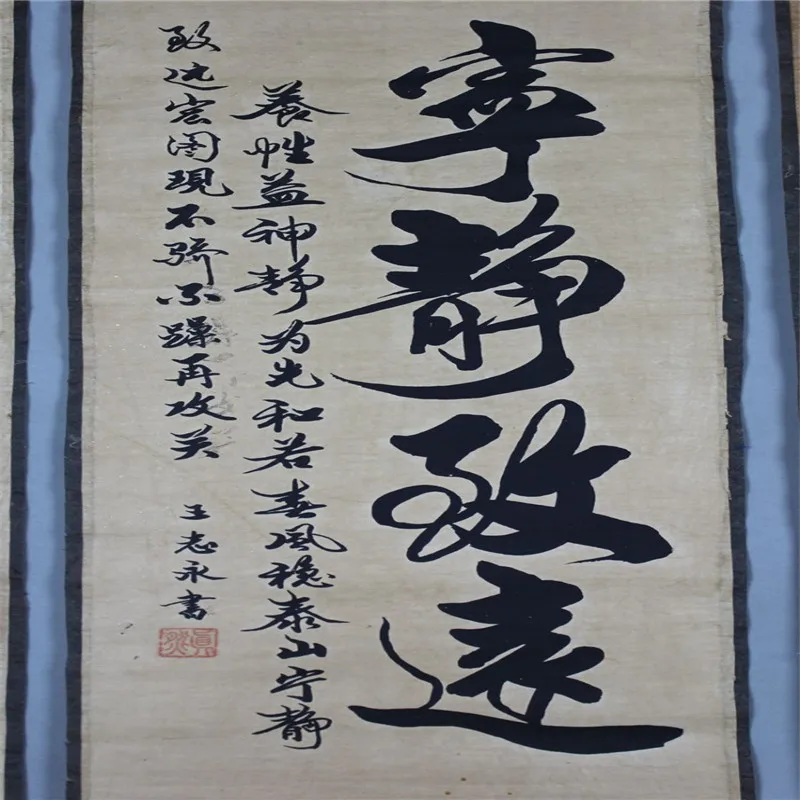 寧靜致遠
養性益神静为先和若春风稳泰山宁静
致远宏图现不骄不躁再攻关
王志永書